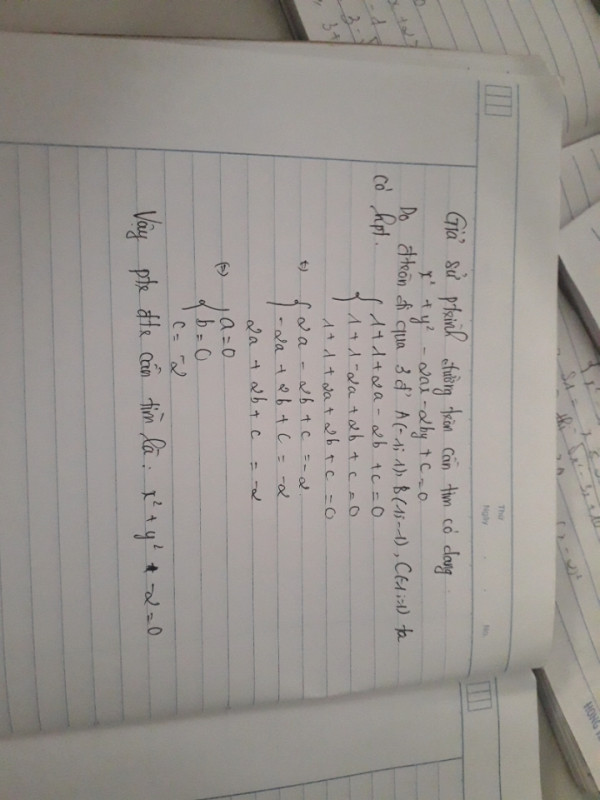 Thứ
Ngày . . No.
Giả sử ptrình đường tròn cần tìm có dạng:
x² + y² - 2ax - 2by + c = 0
Do đtròn đi qua 3 đ' A(-1; 1), B(1; -1), C(-1; -1) ta
có hpt.
{ 1 + 1 + 2a - 2b + c = 0
1 + 1 - 2a + 2b + c = 0
1 + 1 + 2a + 2b + c = 0
(=) { 2a - 2b + c = -2
-2a + 2b + c = -2
2a + 2b + c = -2
(=) { a = 0
b = 0
c = -2
Vậy ptr đtr cần tìm là: x² + y² - 2 = 0